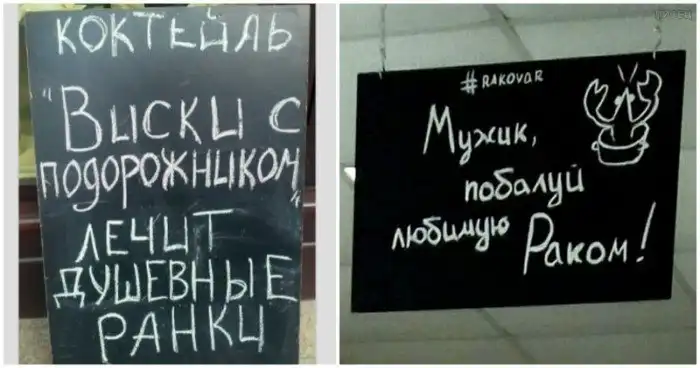 КОКТЕЙЛЬ
"ВИСКИ С
ПОДОРОЖНИКОМ"
ЛЕЧИТ
ДУШЕВНЫЕ
РАНКИ
#RAKOVAR
Мужик,
побалуй
любимую Раком!